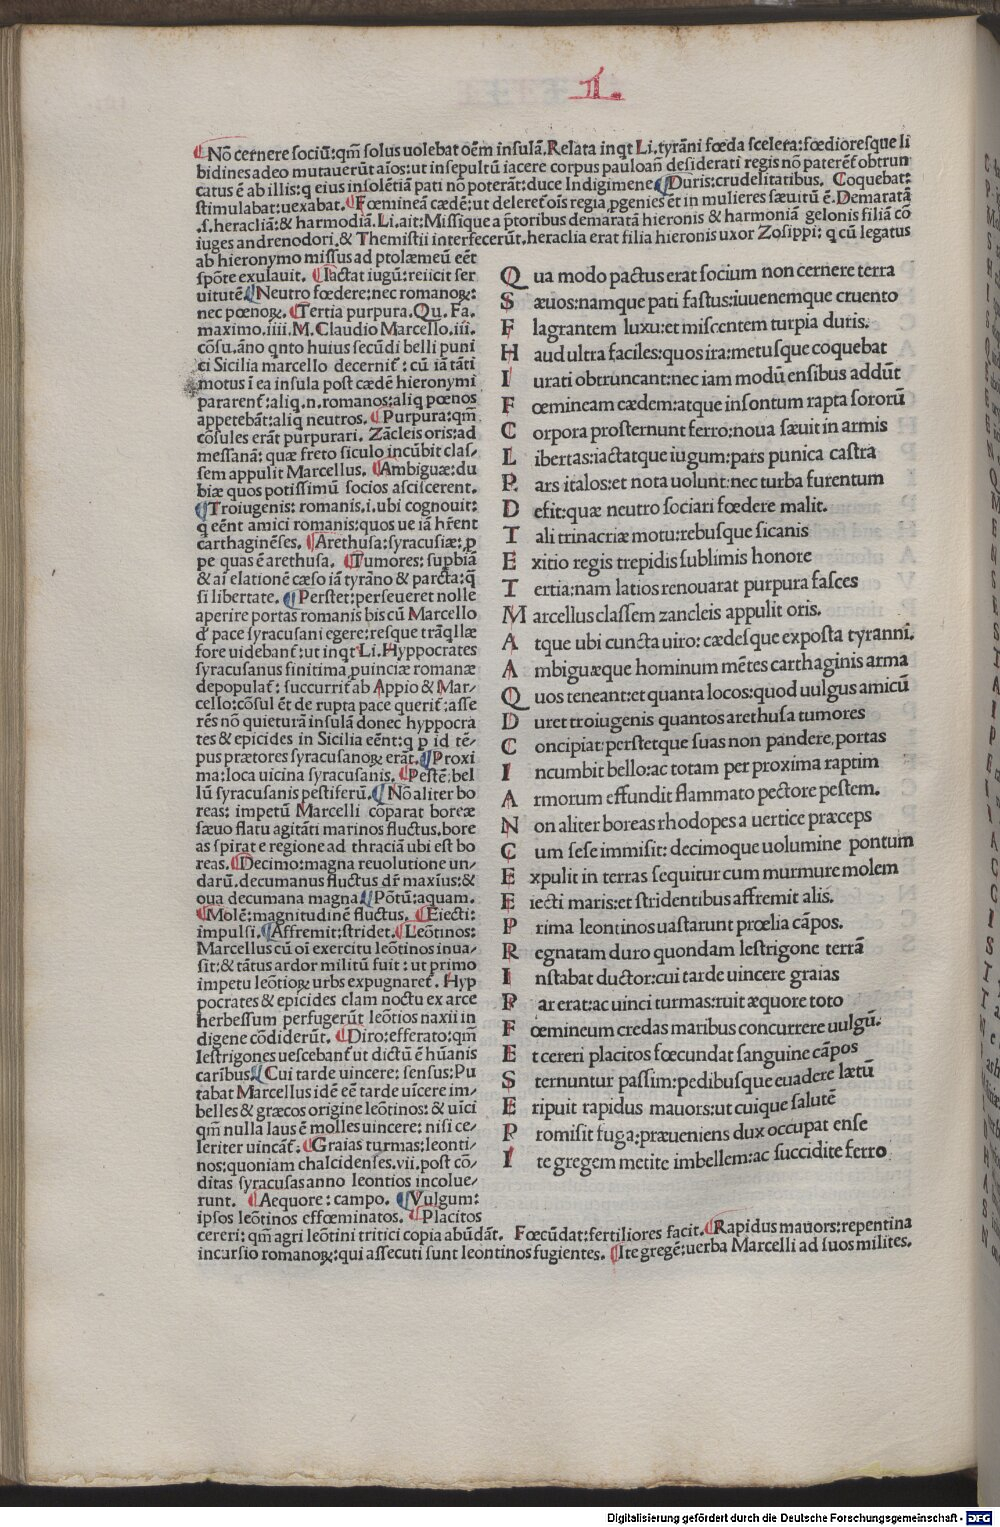 L.
Nō cernere sociū:qm̄ solus uolebat oēm insulā. Relata inqt Li.tyrāni fœda scelera:fœdioresque li
bidines adeo mutauerūt aīos:ut insepultū iacere corpus pauloan̄ desiderati regis nō paterēt̄ obtrun
catus ē ab illis:q eius insolētiā pati nō poterāt:duce Indigimene Duris:crudelitatibus. Coquebat:
stimulabat:uexabat. Fœmineā cædē:ut deleret oīs regia ꝓgenies ēt in mulieres sæuitū ē. Demaratā
.s.heracliā:& harmodiā.Li.ait:Missique a p̄toribus demaratā hieronis & harmoniā gelonis filiā cō
iuges andrenodori.& Themistii interfecerūt.heraclia erat filia hieronis uxor Zosippi: q cū legatus
ab hieronymo missus ad ptolæmeū eēt
spōte exulauit. Iactat iugū:reiicit ser
uitutē. Neutro fœdere:nec romanoꝝ:
nec pœnoꝝ. Tertia purpura.Qu.Fa.
maximo.iiii.M.Claudio Marcello.iii.
cōsu.āno qnto huius secūdi belli puni
ci Sicilia marcello decernit̄: cū iā tāti
motus ī ea insula post cædē hieronymi
pararent̄:aliq.n.romanos:aliq pœnos
appetebāt:aliq neutros. Purpura:qm̄
cōsules erāt purpurari. Zācleis oris:ad
messanā: quæ freto siculo incūbit clas/
sem appulit Marcellus. Ambiguæ:du
biæ quos potissimū socios asciscerent.
Troiugenis: romanis.i.ubi cognouit:
q eēnt amici romanis:quos ue iā hr̄ent
carthaginēses. Arethusa:syracusiæ:ꝓ
pe quas ē arethusa. Tumores: supbiā
& aī elationē cæso iā tyrāno & parcta:q̄
si libertate. Perstet:perseueret nolle
aperire portas romanis bis cū Marcello
d̄ pace syracusani egere:resque trāqllæ
fore uidebant̄:ut inqt Li.Hyppocrates
syracusanus finitima ꝓuinciæ romanæ
depopulat̄: succurrit̄ ab Appio & Mar/
cello:cōsul ēt de rupta pace querit̄:asse
rēs nō quieturā insulā donec hyppocra
tes & epicides in Sicilia eēnt:q p id tē/
pus prætores syracusanoꝝ erāt. Proxi
ma:loca uicina syracusanis. Pestē:bel
lū syracusanis pestiferū. Nō aliter bo
reas: impetū Marcelli cōparat boreæ
sæuo flatu agitāti marinos fluctus.bore
as spirat e regione ad thraciā ubi est bo
reas. Decimo:magna reuolutione un/
darū.decumanus fluctus dr̄ maxīus:&
oua decumana magna Pōtū:aquam.
Molē:magnitudinē fluctus. Eiecti:
impulsi. Affremit:stridet. Leōtinos:
Marcellus cū oī exercitu leōtinos inua/
sit:& tātus ardor militū fuit: ut primo
impetu leōtioꝝ urbs expugnaret̄. Hyp
pocrates & epicides clam noctu ex arce
herbessum perfugerūt leōtios naxii in
digene cōdiderūt. Diro:efferato:qm̄
lestrigones uescebant̄ ut dictū ē hūanis
carībus. Cui tarde uincere: sensus:Pu
tabat Marcellus idē eē tarde uīcere im/
belles & græcos origine leōtinos: & uīci
qm̄ nulla laus ē molles uincere: nisi ce/
leriter uincāt̄: Graias turmas:leonti/
nos:quoniam chalcidenses.vii.post cō/
ditas syracusas anno leontios incolue/
runt. Aequore: campo. Vulgum:
ipsos leōtinos effœminatos. Placitos
cereri: qm̄ agri leōtini tritici copia abūdāt. Fœcūdat:fertiliores facit. Rapidus mauors:repentina
incursio romanoꝝ:qui assecuti sunt leontinos fugientes. Ite gregē:uerba Marcelli ad suos milites.
Q ua modo pactus erat socium non cernere terra
S æuos:namque pati fastus:iuuenemque cruento
F lagrantem luxu:et miscentem turpia duris.
H aud ultra faciles:quos ira:metusque coquebat
I urati obtruncant:nec iam modū ensibus addūt
F œmineam cædem:atque insontum rapta sororū
C orpora prosternunt ferro:noua sæuit in armis
L ibertas:iactatque iugum:pars punica castra
P ars italos:et nota uolunt:nec turba furentum
D efit:quæ neutro sociari fœdere malit.
T ali trinacriæ motu:rebusque sicanis
E xitio regis trepidis sublimis honore
T ertia:nam latios renouarat purpura fasces
M arcellus classem zancleis appulit oris.
A tque ubi cuncta uiro: cædesque exposta tyranni.
A mbiguæque hominum mētes carthaginis arma
Q uos teneant:et quanta locos:quod uulgus amicū
D uret troiugenis quantos arethusa tumores
C oncipiat:perstetque suas non pandere portas
I ncumbit bello:ac totam per proxima raptim
A rmorum effundit flammato pectore pestem.
N on aliter boreas rhodopes a uertice præceps
C um sese immisit: decimoque uolumine pontum
E xpulit in terras sequitur cum murmure molem
E iecti maris:et stridentibus affremit alis.
P rima leontinos uastarunt prœlia cāpos.
R egnatam duro quondam lestrigone terrā
I nstabat ductor:cui tarde uincere graias
P ar erat:ac uinci turmas:ruit æquore toto
F œmineum credas maribus concurrere uulgū.
E t cereri placitos fœcundat sanguine cāpos
S ternuntur passim:pedibusque euadere lætū
E ripuit rapidus mauors:ut cuique salutē
P romisit fuga:præueniens dux occupat ense
I te gregem metite imbellem:ac succidite ferro
Digitalisierung gefördert durch die Deutsche Forschungsgemeinschaft - DFG